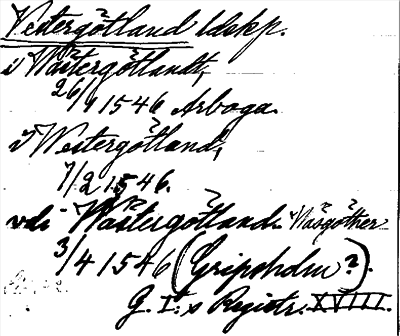 Vestergötland ldskp.
i Wästergötlandt,
26/1 1546 Arboga.
i Westergötland,
7/2 1546.
vdi Wästergötland. Wäsgöther
3/4 1546 (Gripsholm?).
G. I:s Registr. XVIII.